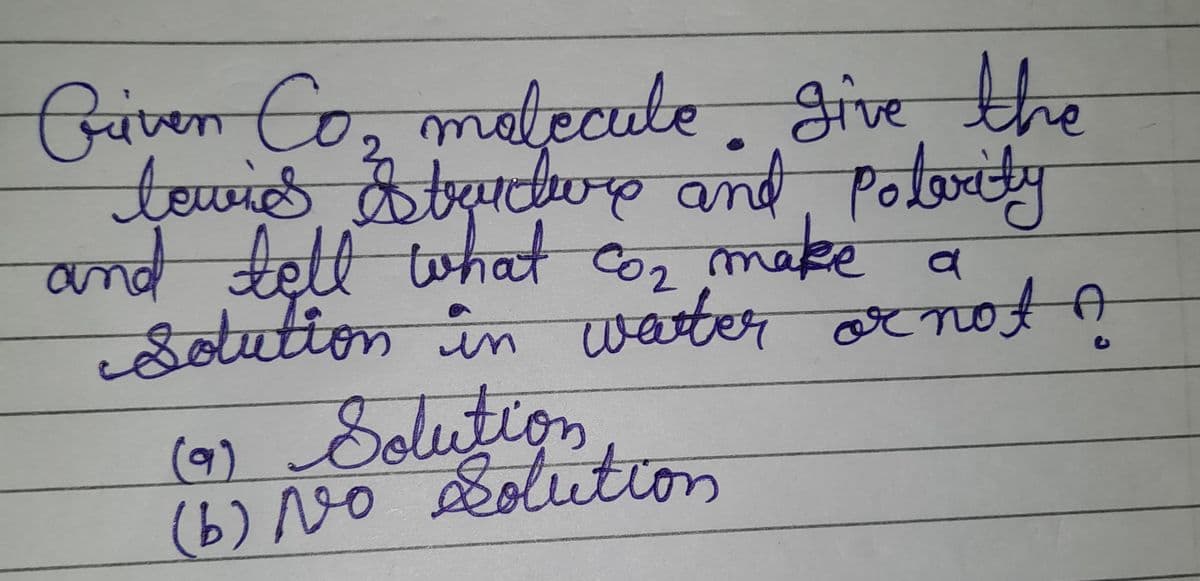 Given Co₂ molecule. give the
lewis structure and polarity
and tell what co₂ make a
solution in watter or not ?
(a) Solution
(b) No solution